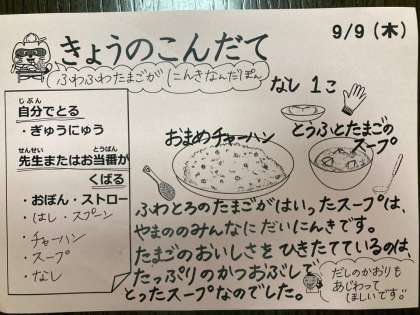 9/9（木）
きょうのこんだて
ふわふわたまごが にんきなんだぽん
なし 1こ
自分でとる
じぶん
・ぎゅうにゅう
先生またはお当番が
せんせい とうばん
くばる
・おぼん・ストロー
・はし・スプーン
・チャーハン
・スープ
・なし
おまめチャーハン
とうふとたまごの
スープ
ふわとろのたまごがはいったスープは、
やまののみんなにだいにんきです。
たまごのおいしさをひきたてているのは、
たっぷりのかつおぶしで
とったスープなのでした。
だしのかおりも
あじわって
ほしいです。